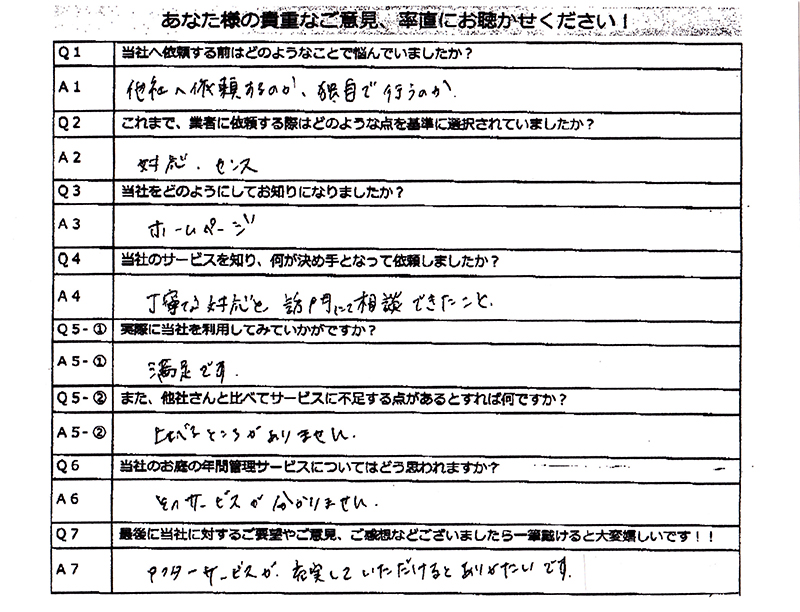 あなた様の貴重なご意見、率直にお聴かせください！
Q1 当社へ依頼する前はどのようなことで悩んでいましたか？
A1 他社へ依頼するのか、独自で行うのか.
Q2 これまで、業者に依頼する際はどのような点を基準に選択されていましたか？
A2 対応．センス
Q3 当社をどのようにしてお知りになりましたか？
A3 ホームページ
Q4 当社のサービスを知り、何が決め手となって依頼しましたか？
A4 丁寧な対応と訪問にて相談できたこと.
Q5-① 実際に当社を利用してみていかがですか？
A5-① 満足です.
Q5-② また、他社さんと比べてサービスに不足する点があるとすれば何ですか？
A5-② 比べるところがありません.
Q6 当社のお庭の年間管理サービスについてはどう思われますか？
A6 サービスが分かりません.
Q7 最後に当社に対するご要望やご意見、ご感想などございましたら一筆戴けると大変嬉しいです！！
A7 アフターサービスが、充実していただけるとありがたいです.